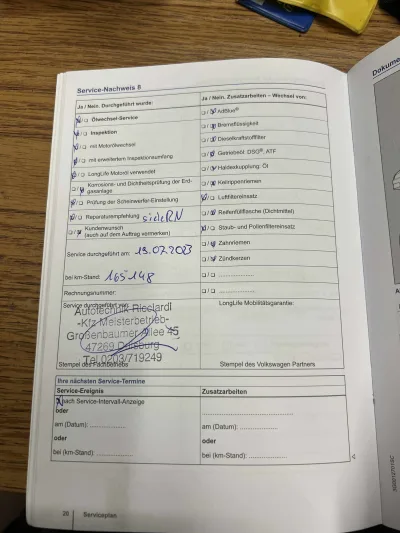 Service-Nachweis 8
Ja / Nein. Durchgeführt wurde:
Ölwechsel-Service
Inspektion
mit Motorölwechsel
mit erweitertem Inspektionsumfang
LongLife Motoröl verwendet
Korrosions- und Dichtheitsprüfung der Erdgasanlage
Prüfung der Scheinwerfer-Einstellung
Reparaturempfehlung siehe RN
Kundenwunsch
(auch auf dem Auftrag vermerken)
Service durchgeführt am: 19.07.2023
bei km-Stand: 165148
Rechnungsnummer:
Service durchgeführt von:
Autotechnik Ricciardi
-Kfz Meisterbetrieb-
Großenbaumer Allee 45
47269 Duisburg
Tel.0203/719249
Stempel des Fachbetriebs
Ja / Nein. Zusatzarbeiten – Wechsel von:
AdBlue®
Bremsflüssigkeit
Dieselkraftstofffilter
Getriebeöl: DSG®, ATF
Haldexkupplung: Öl
Keilrippenriemen
Luftfiltereinsatz
Reifenfüllflasche (Dichtmittel)
Staub- und Pollenfiltereinsatz
Zahnriemen
Zündkerzen
LongLife Mobilitätsgarantie:
Stempel des Volkswagen Partners
Ihre nächsten Service-Termine
Service-Ereignis
nach Service-Intervall-Anzeige
oder
am (Datum):
oder
bei (km-Stand):
Zusatzarbeiten
am (Datum):
oder
bei (km-Stand):
Serviceplan
Dokume